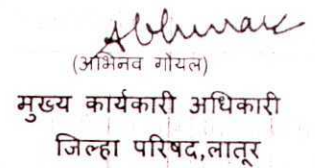 Abhinav
(अभिनव गोयल)
मुख्य कार्यकारी अधिकारी
जिल्हा परिषद,लातूर